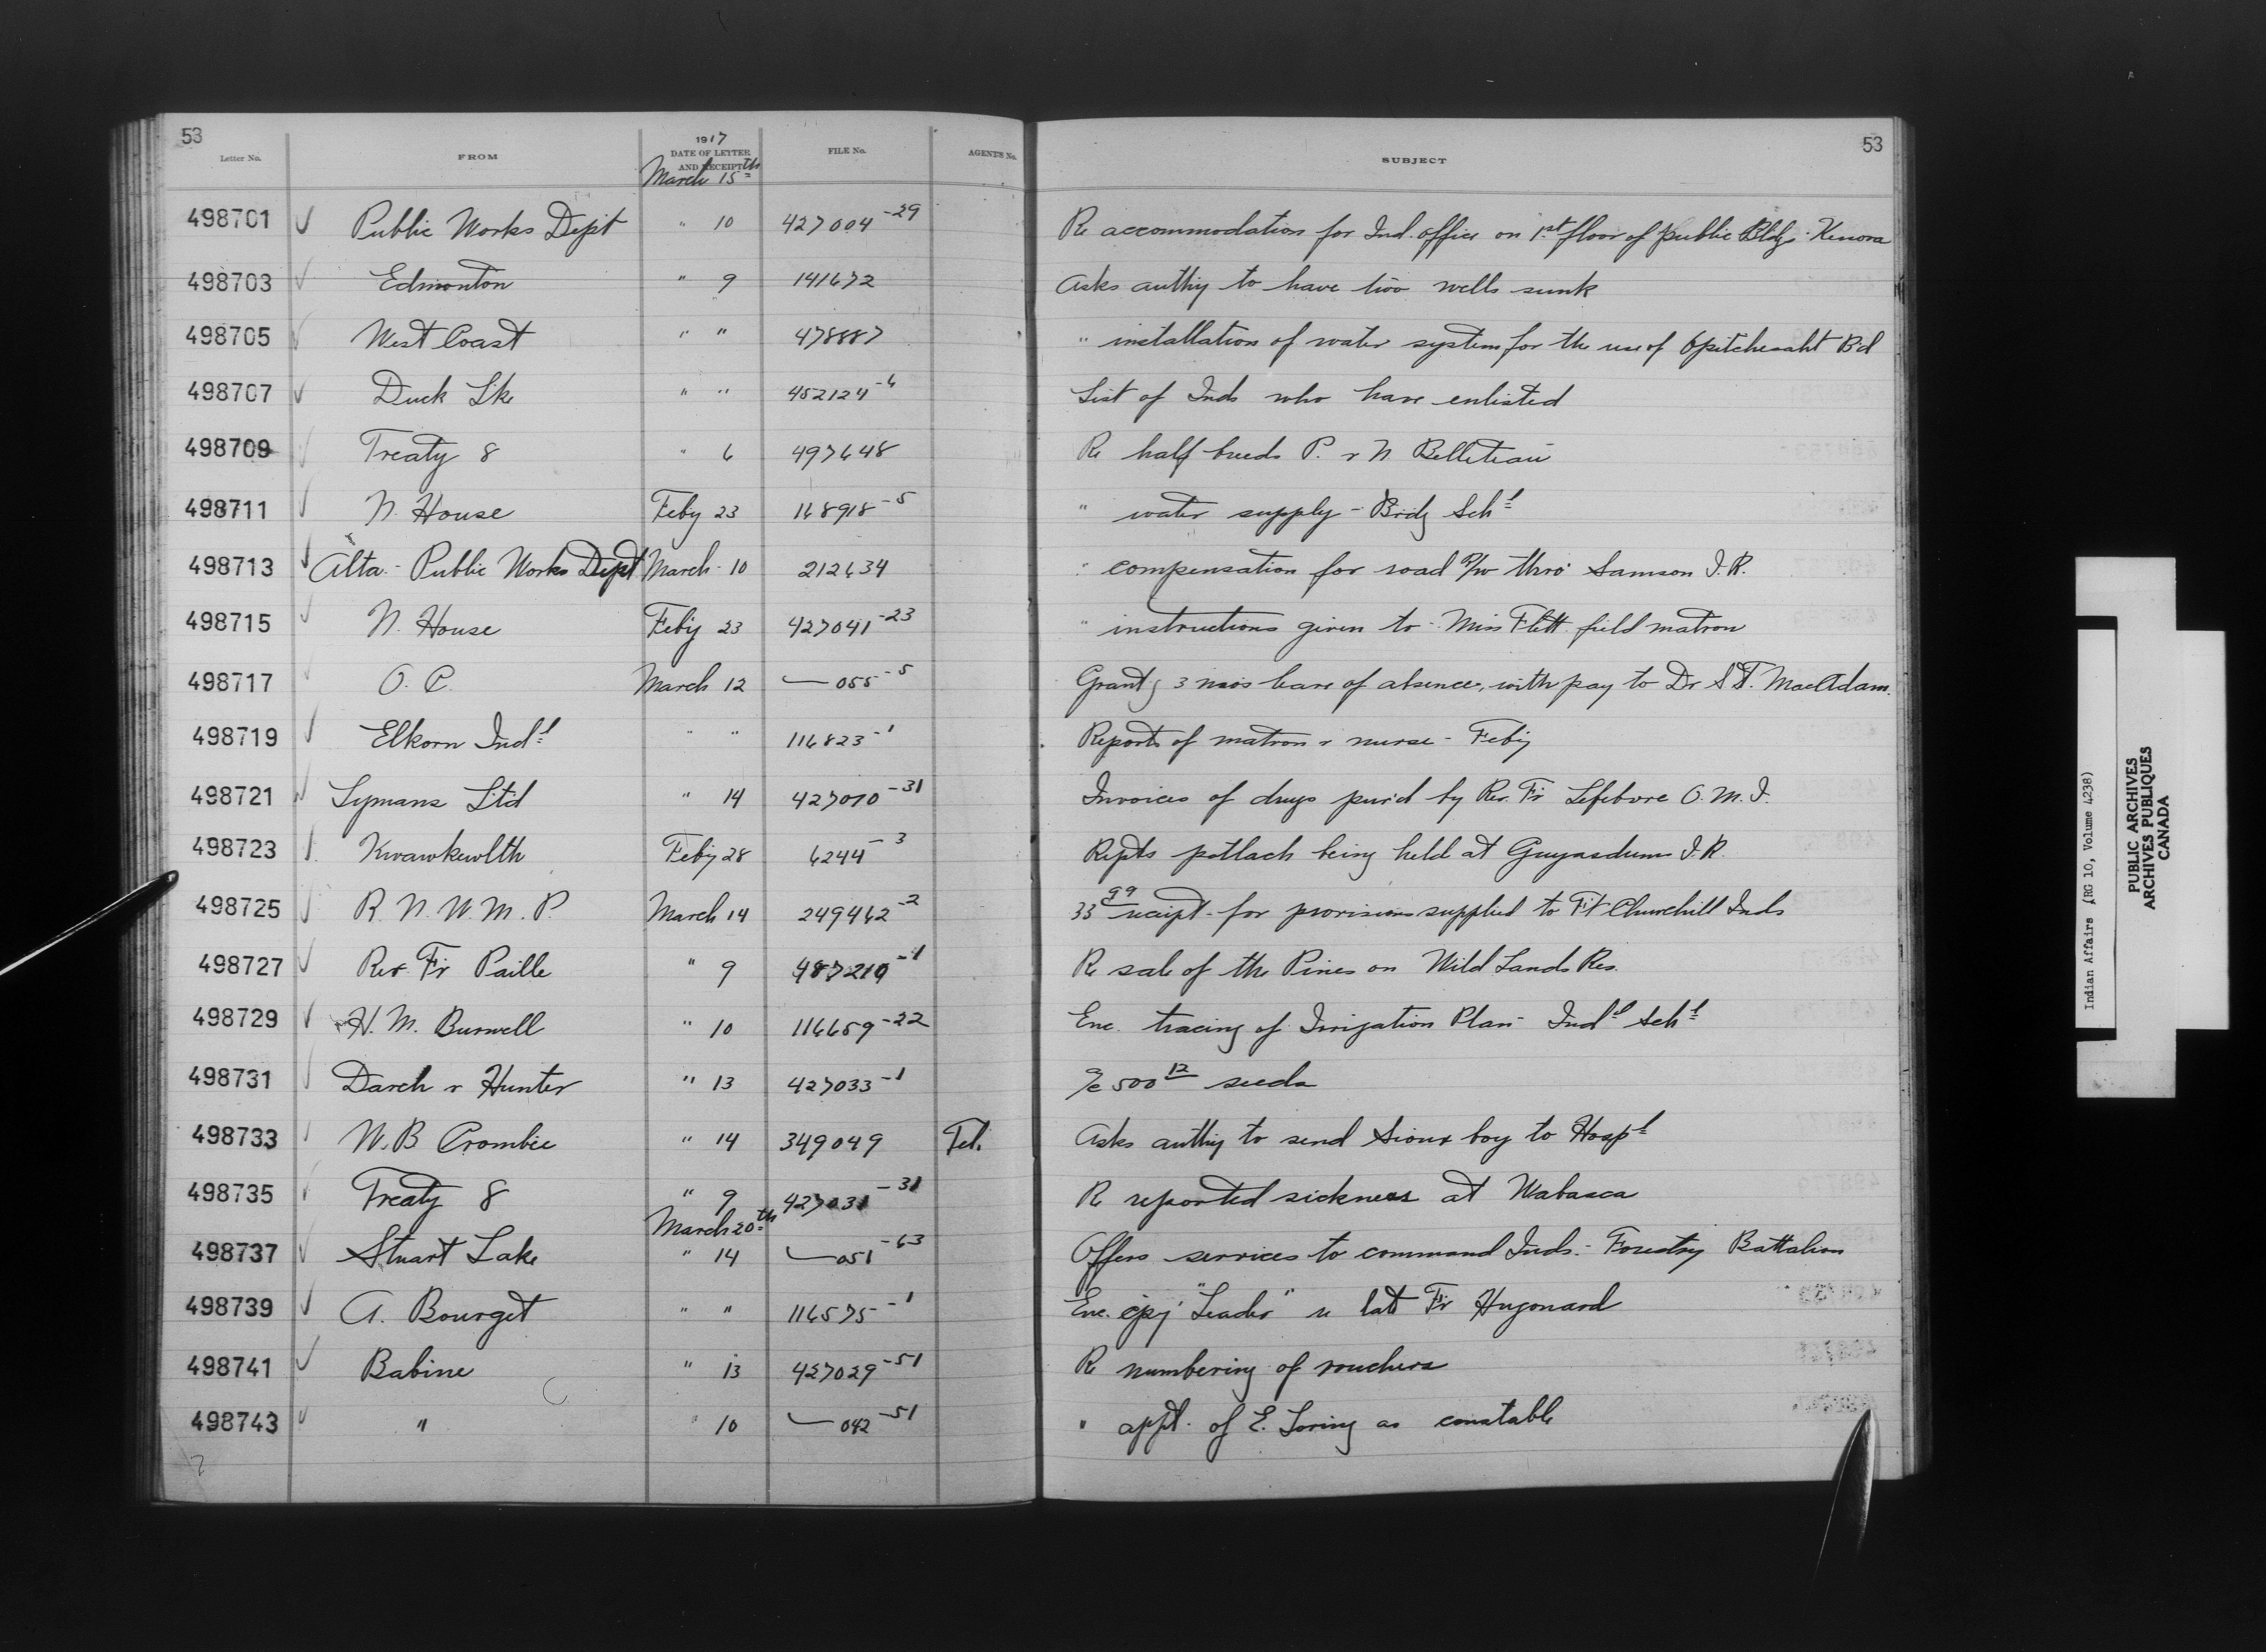 53
53
1917
Letter No.
FROM
DATE OF LETTER AND RECEIPT
FILE No.
AGENT'S No.
SUBJECT
March 15th
498701 Public Works Dept " 10 427004-29 Re accommodation for Ind. office on 1st floor of public Bldg - Kenora
498703 Edmonton " 9 141672 Asks authy to have two wells sunk
498705 West Coast " " 478887 " installation of water system for the use of Opitchesaht Bd
498707 Duck Lke " " 452124-6 List of Inds who have enlisted
498709 Treaty 8 " 6 497648 Re half breeds P. & N.
498711 N. House Feby 23 168918-5 " water supply - Brdg Schl
498713 Alta - Public Works Dept March 10 212634 " compensation for road R/W thro' Samson I.R.
498715 N. House Feby 23 427041-23 " instructions given to - Miss Flett field matron
498717 O. C. March 12 055-5 Grantg 3 mos leave of absence, with pay to Dr S.T. MacAdam.
498719 Elkorn Indl " " 116823-1 Reports of matron & nurse - Feby
498721 Lymans Ltd " 14 427070-31 Invoices of drugs purd by Rev. Fr Lefebvre O.M.I.
498723 Kwawkewlth Feby 28 6244-3 Repts potlach being held at Gwyasdums I.R.
498725 R.N.W.M.P. March 14 249462-2 33 99 receipt - for provisions supplied to Ft Churchill Inds
498727 Rev. Fr Paille " 9 487210-1 Re sale of the Pines on Wild Lands Res.
498729 H. M. Burwell " 10 116659-22 Enc. tracing of Irrigation Plan - Indl Schl
498731 Darch & Hunter " 13 427033-1 a/c 500 12 seeds
498733 W. B Crombie " 14 349049 Tel. Asks authy to send Sioux boy to Hospl
498735 Treaty 8 " 9 427031-31 Re reported sickness at Wabasca
March 20th
498737 Stuart Lake " 14 051-63 Offers services to command Inds. - Forestry Battalion
498739 A. Bourget " " 116575-1 Enc. cpy "Leader" re late Fr Hugonard
498741 Babine " 13 427029-51 Re numbering of vouchers
498743 " " 10 042-51 " appt. of E. Loring as constable
Indian Affairs (RG 10, Volume 4238)
PUBLIC ARCHIVES
ARCHIVES PUBLIQUES
CANADA